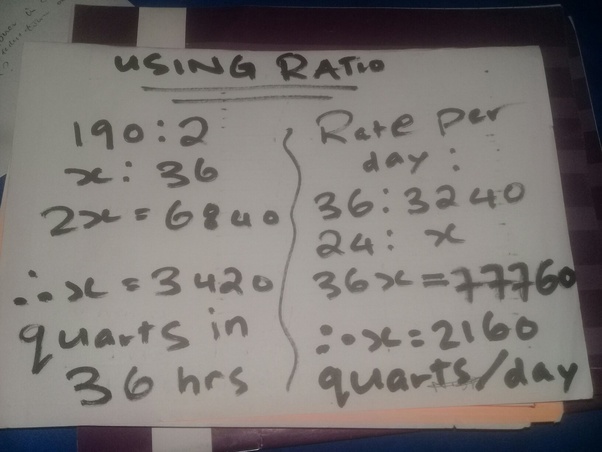 USING RATIO
190:2
x: 36
2x = 6840
∴x = 3420
quarts in
36 hrs
Rate per
day:
36:3240
24: x
36x = 77760
∴x = 2160
quarts/day